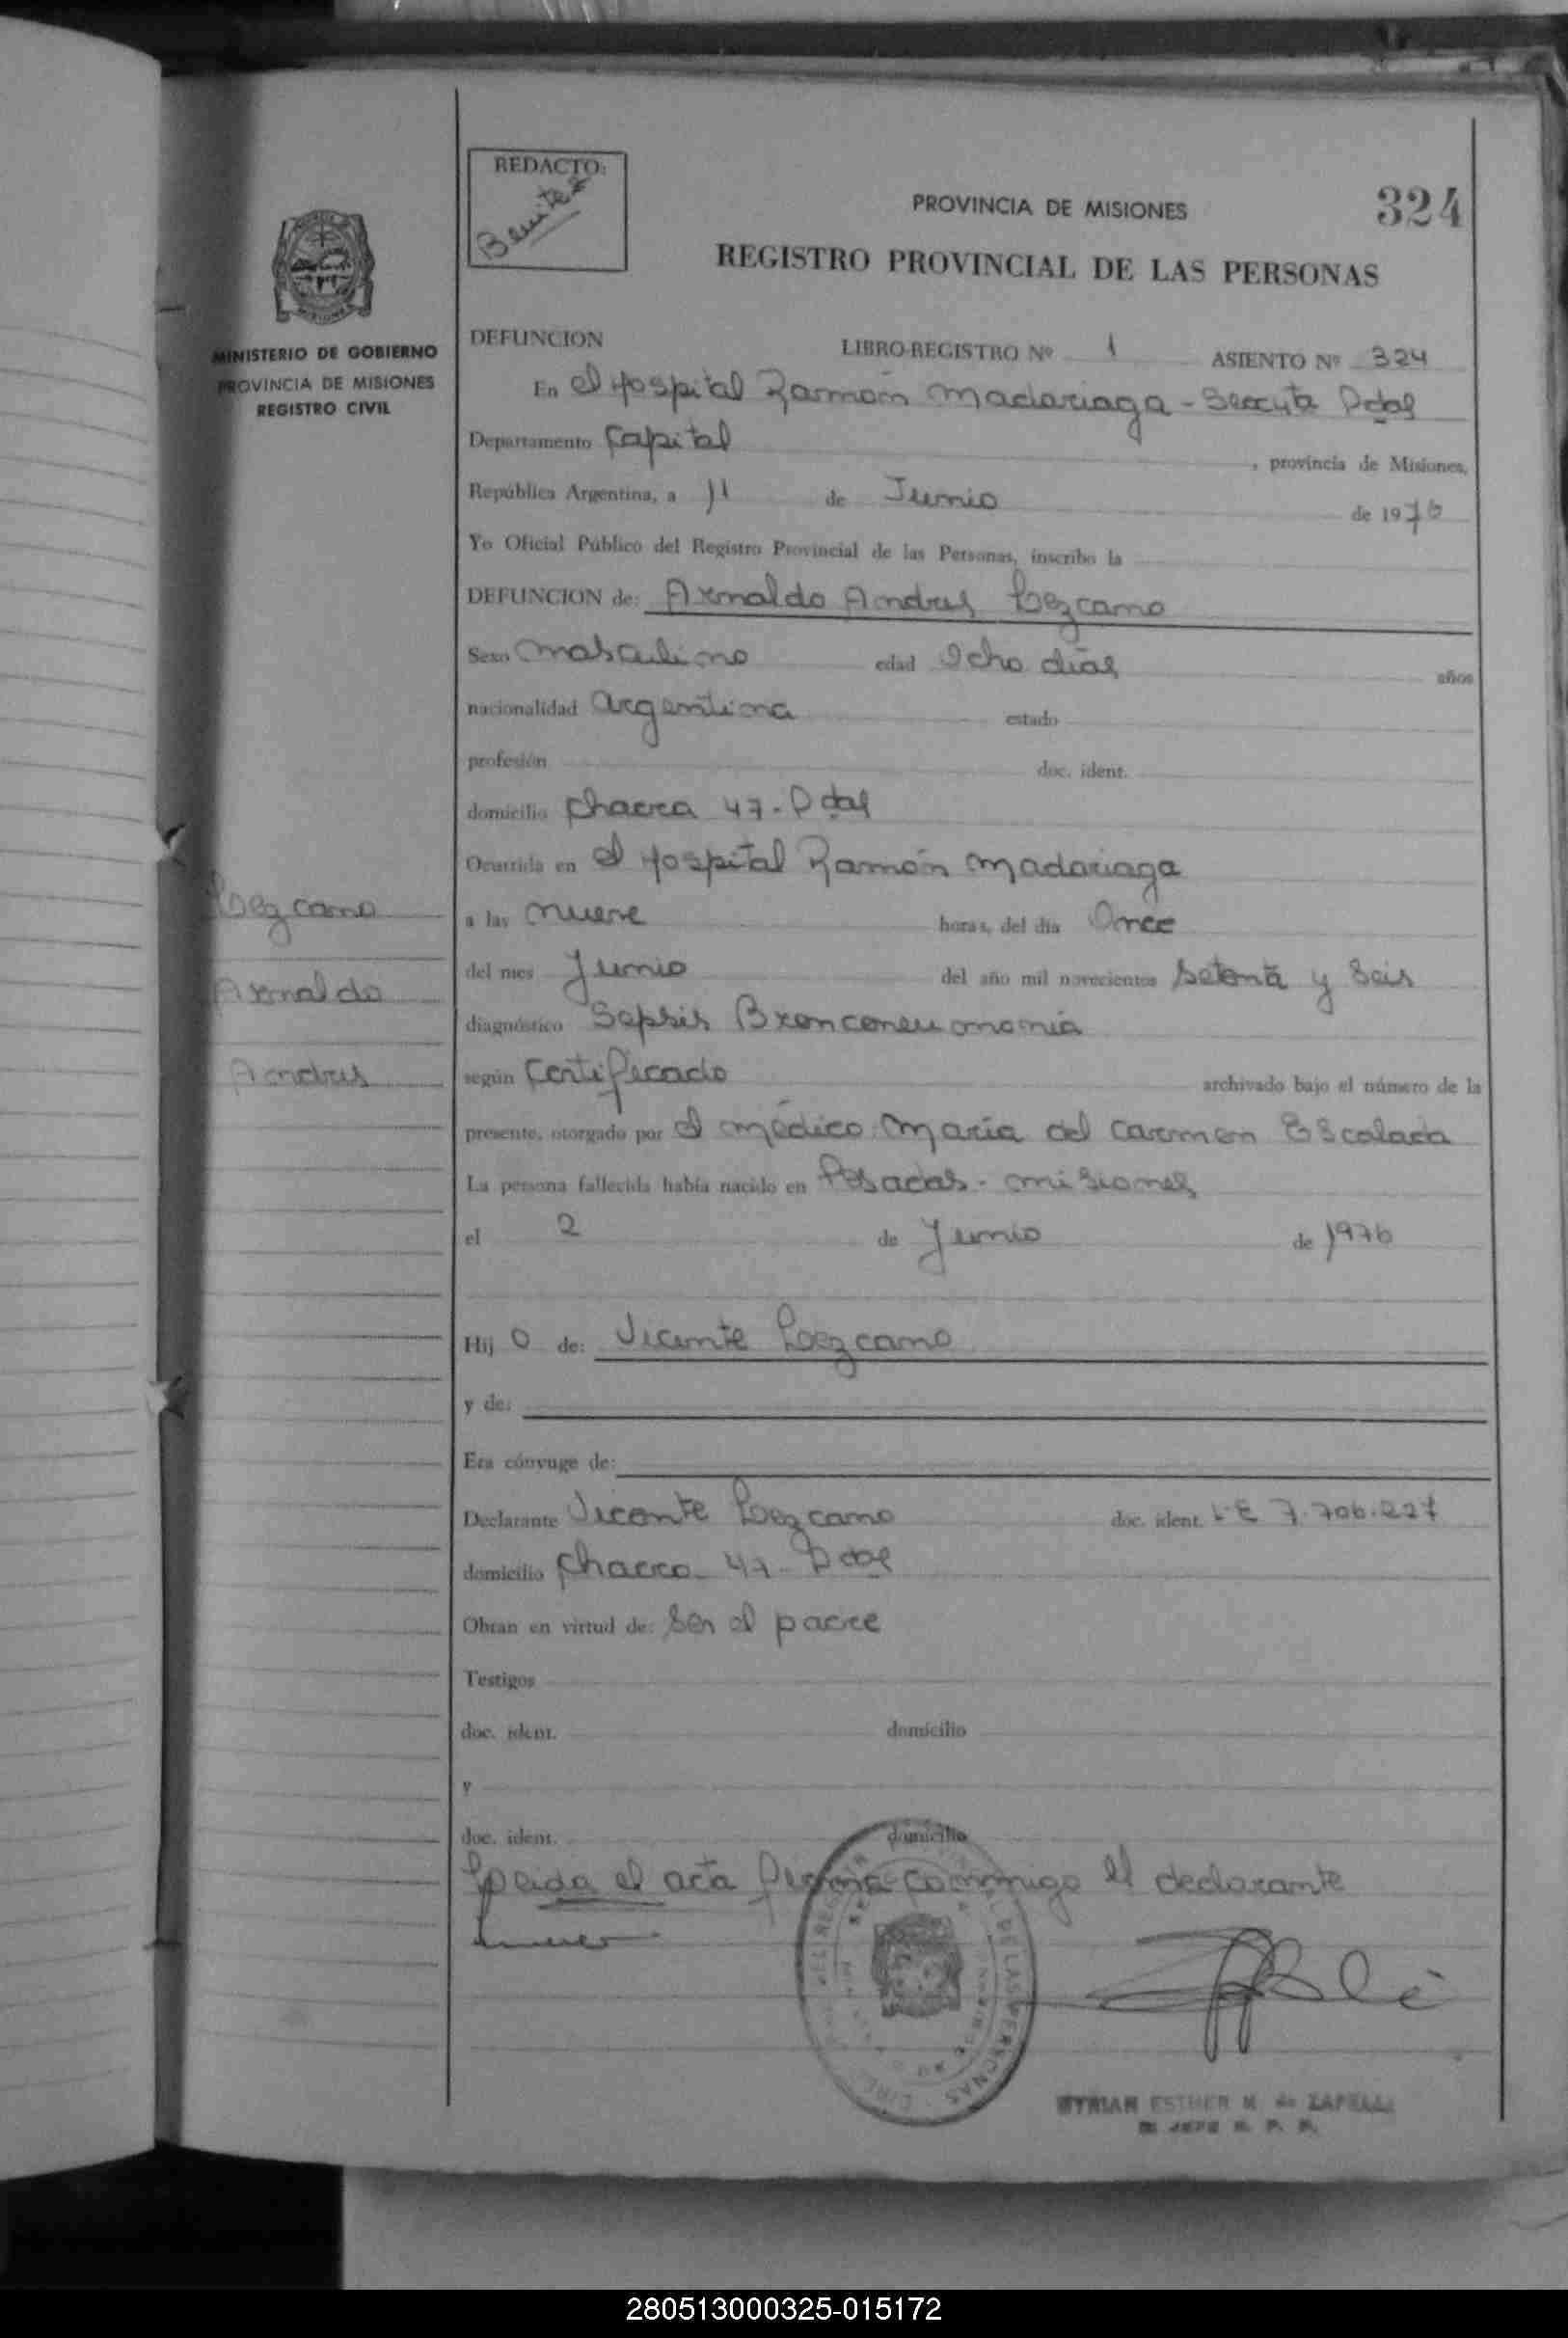 REDACTO:
Benitez
PROVINCIA DE MISIONES
324
REGISTRO PROVINCIAL DE LAS PERSONAS
MINISTERIO DE GOBIERNO
PROVINCIA DE MISIONES
REGISTRO CIVIL
DEFUNCION LIBRO-REGISTRO Nº 1 ASIENTO Nº 324
En el Hospital Ramón Madariaga - Seccita Pdas
Departamento Capital , provincia de Misiones,
República Argentina, a 11 de Junio de 1976
Yo Oficial Público del Registro Provincial de las Personas, inscribo la
DEFUNCION de: Arnaldo Andres Lezcano
Sexo Masculino edad Ocho dias años
nacionalidad argentina estado
profesión doc. ident.
domicilio Chacra 47 - Pdas
Ocurrida en el Hospital Ramón Madariaga
a las nueve horas, del día Once
del mes Junio del año mil novecientos setenta y seis
diagnóstico Sepsis Bronconeumonia
según Certificado archivado bajo el número de la
presente, otorgado por el médico Maria del Carmen Escalada
La persona fallecida había nacido en Posadas - Misiones
el 2 de Junio de 1976
Lezcano
Arnaldo
Andres
Hij o de: Vicente Lezcano
y de:
Era cónyuge de:
Declarante Vicente Lezcano doc. ident. L E 7.706.227
domicilio Chacra 47 - Pdas
Obran en virtud de: Ser el padre
Testigos
doc. ident. domicilio
y
doc. ident. domicilio
Leida el acta firma conmigo el declarante
DE LAS PERSONAS
MYRIAN ESTHER M. de ZAPELLI
280513000325-015172